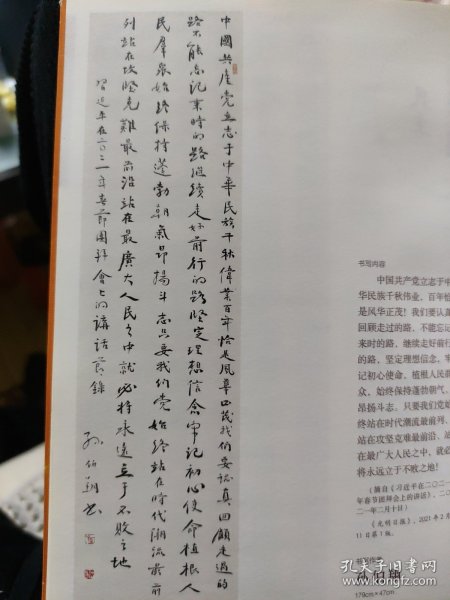 中國共産党立志于中華民族千秋偉業百年恰是風華正茂我们要認真回顧走過的
路不能忘记来時的路继续走好前行的路堅定理想信念牢记初心使命植根人
民群衆始终保持蓬勃朝氣昂揚斗志只要我们党始终站在時代潮流最前
列站在攻堅克難最前沿站在最廣大人民之中就必将永遠立于不敗之地
習近平在二〇二一年春節團拜會上的講話節錄
孙伯翔书
书写内容
中国共产党立志于中
华民族千秋伟业，百年恰
是风华正茂！我们要认真
回顾走过的路，不能忘记
来时的路，继续走好前行
的路，坚定理想信念，牢
记初心使命，植根人民群
众，始终保持蓬勃朝气、
昂扬斗志。只要我们党始
终站在时代潮流最前列、
站在攻坚克难最前沿、站
在最广大人民之中，就必
将永远立于不败之地！
（摘自《习近平在二〇二一
年春节团拜会上的讲话》，二〇
二一年二月十日）
（《光明日报》，2021年2月
11日第1版。
书写作者
孙伯翔
179cm×47cm
孔夫子旧书网